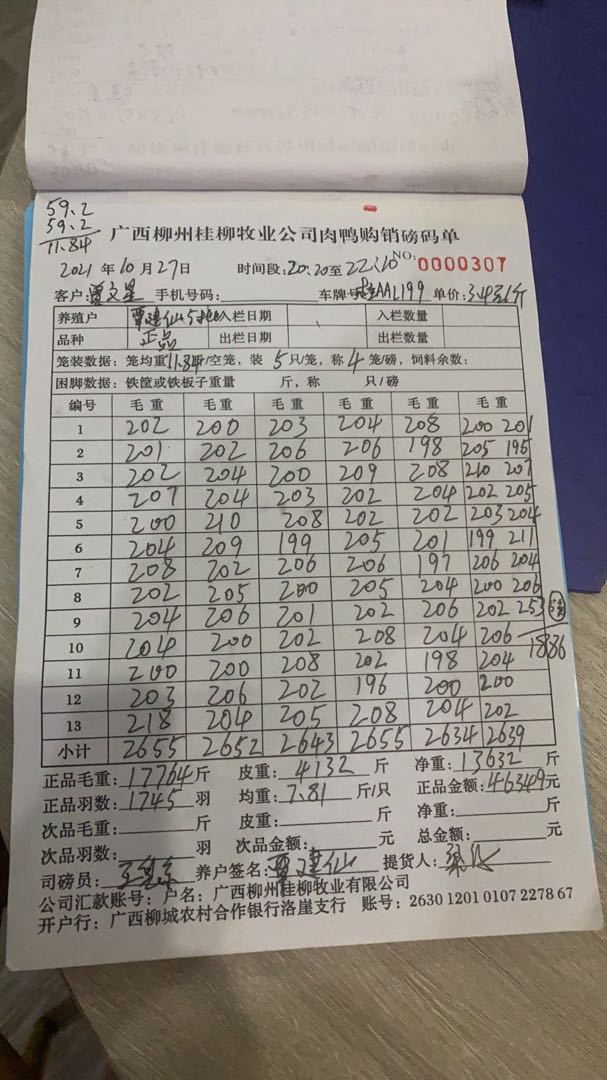 59.2
59.2
11.84
广西柳州桂柳牧业公司肉鸭购销磅码单
2021 年 10 月 27 日 时间段:20:20至22:10 NO: 0000307
客户: 覃文星 手机号码: 车牌号 桂AAL199 单价: 3.4元/斤
养殖户 覃建仙 入栏日期 入栏数量
品种 正品 出栏日期 出栏数量
笼装数据: 笼均重11.84斤/空笼, 装 5 只/笼, 称 4 笼/磅, 饲料余数:
困脚数据: 铁筐或铁板子重量 斤, 称 只/磅
编号 毛重 毛重 毛重 毛重 毛重 毛重
1 202 200 203 204 208 200 201
2 201 202 206 206 198 205 195
3 202 204 200 209 208 210 207
4 207 204 203 202 204 202 205
5 200 210 208 202 202 203 204
6 204 209 199 205 201 199 211
7 208 202 206 206 197 206 204
8 202 205 200 205 204 200 206
9 204 206 201 202 206 202 253
10 204 200 202 208 204 206 1886
11 200 200 208 202 198 204
12 203 206 202 196 200 200
13 218 204 205 208 204 202
小计 2655 2652 2643 2655 2634 2639
正品毛重: 17764 斤 皮重: 4132 斤 净重: 13632 斤
正品羽数: 1745 羽 均重: 7.81 斤/只 正品金额: 46349 元
次品毛重: 斤 皮重: 斤 净重: 斤
次品羽数: 羽 次品金额: 元 总金额: 元
司磅员: 养户签名: 覃建仙 提货人:
公司汇款账号: 户名: 广西柳州桂柳牧业有限公司
开户行: 广西柳城农村合作银行洛崖支行 账号: 2630 1201 0107 2278 67